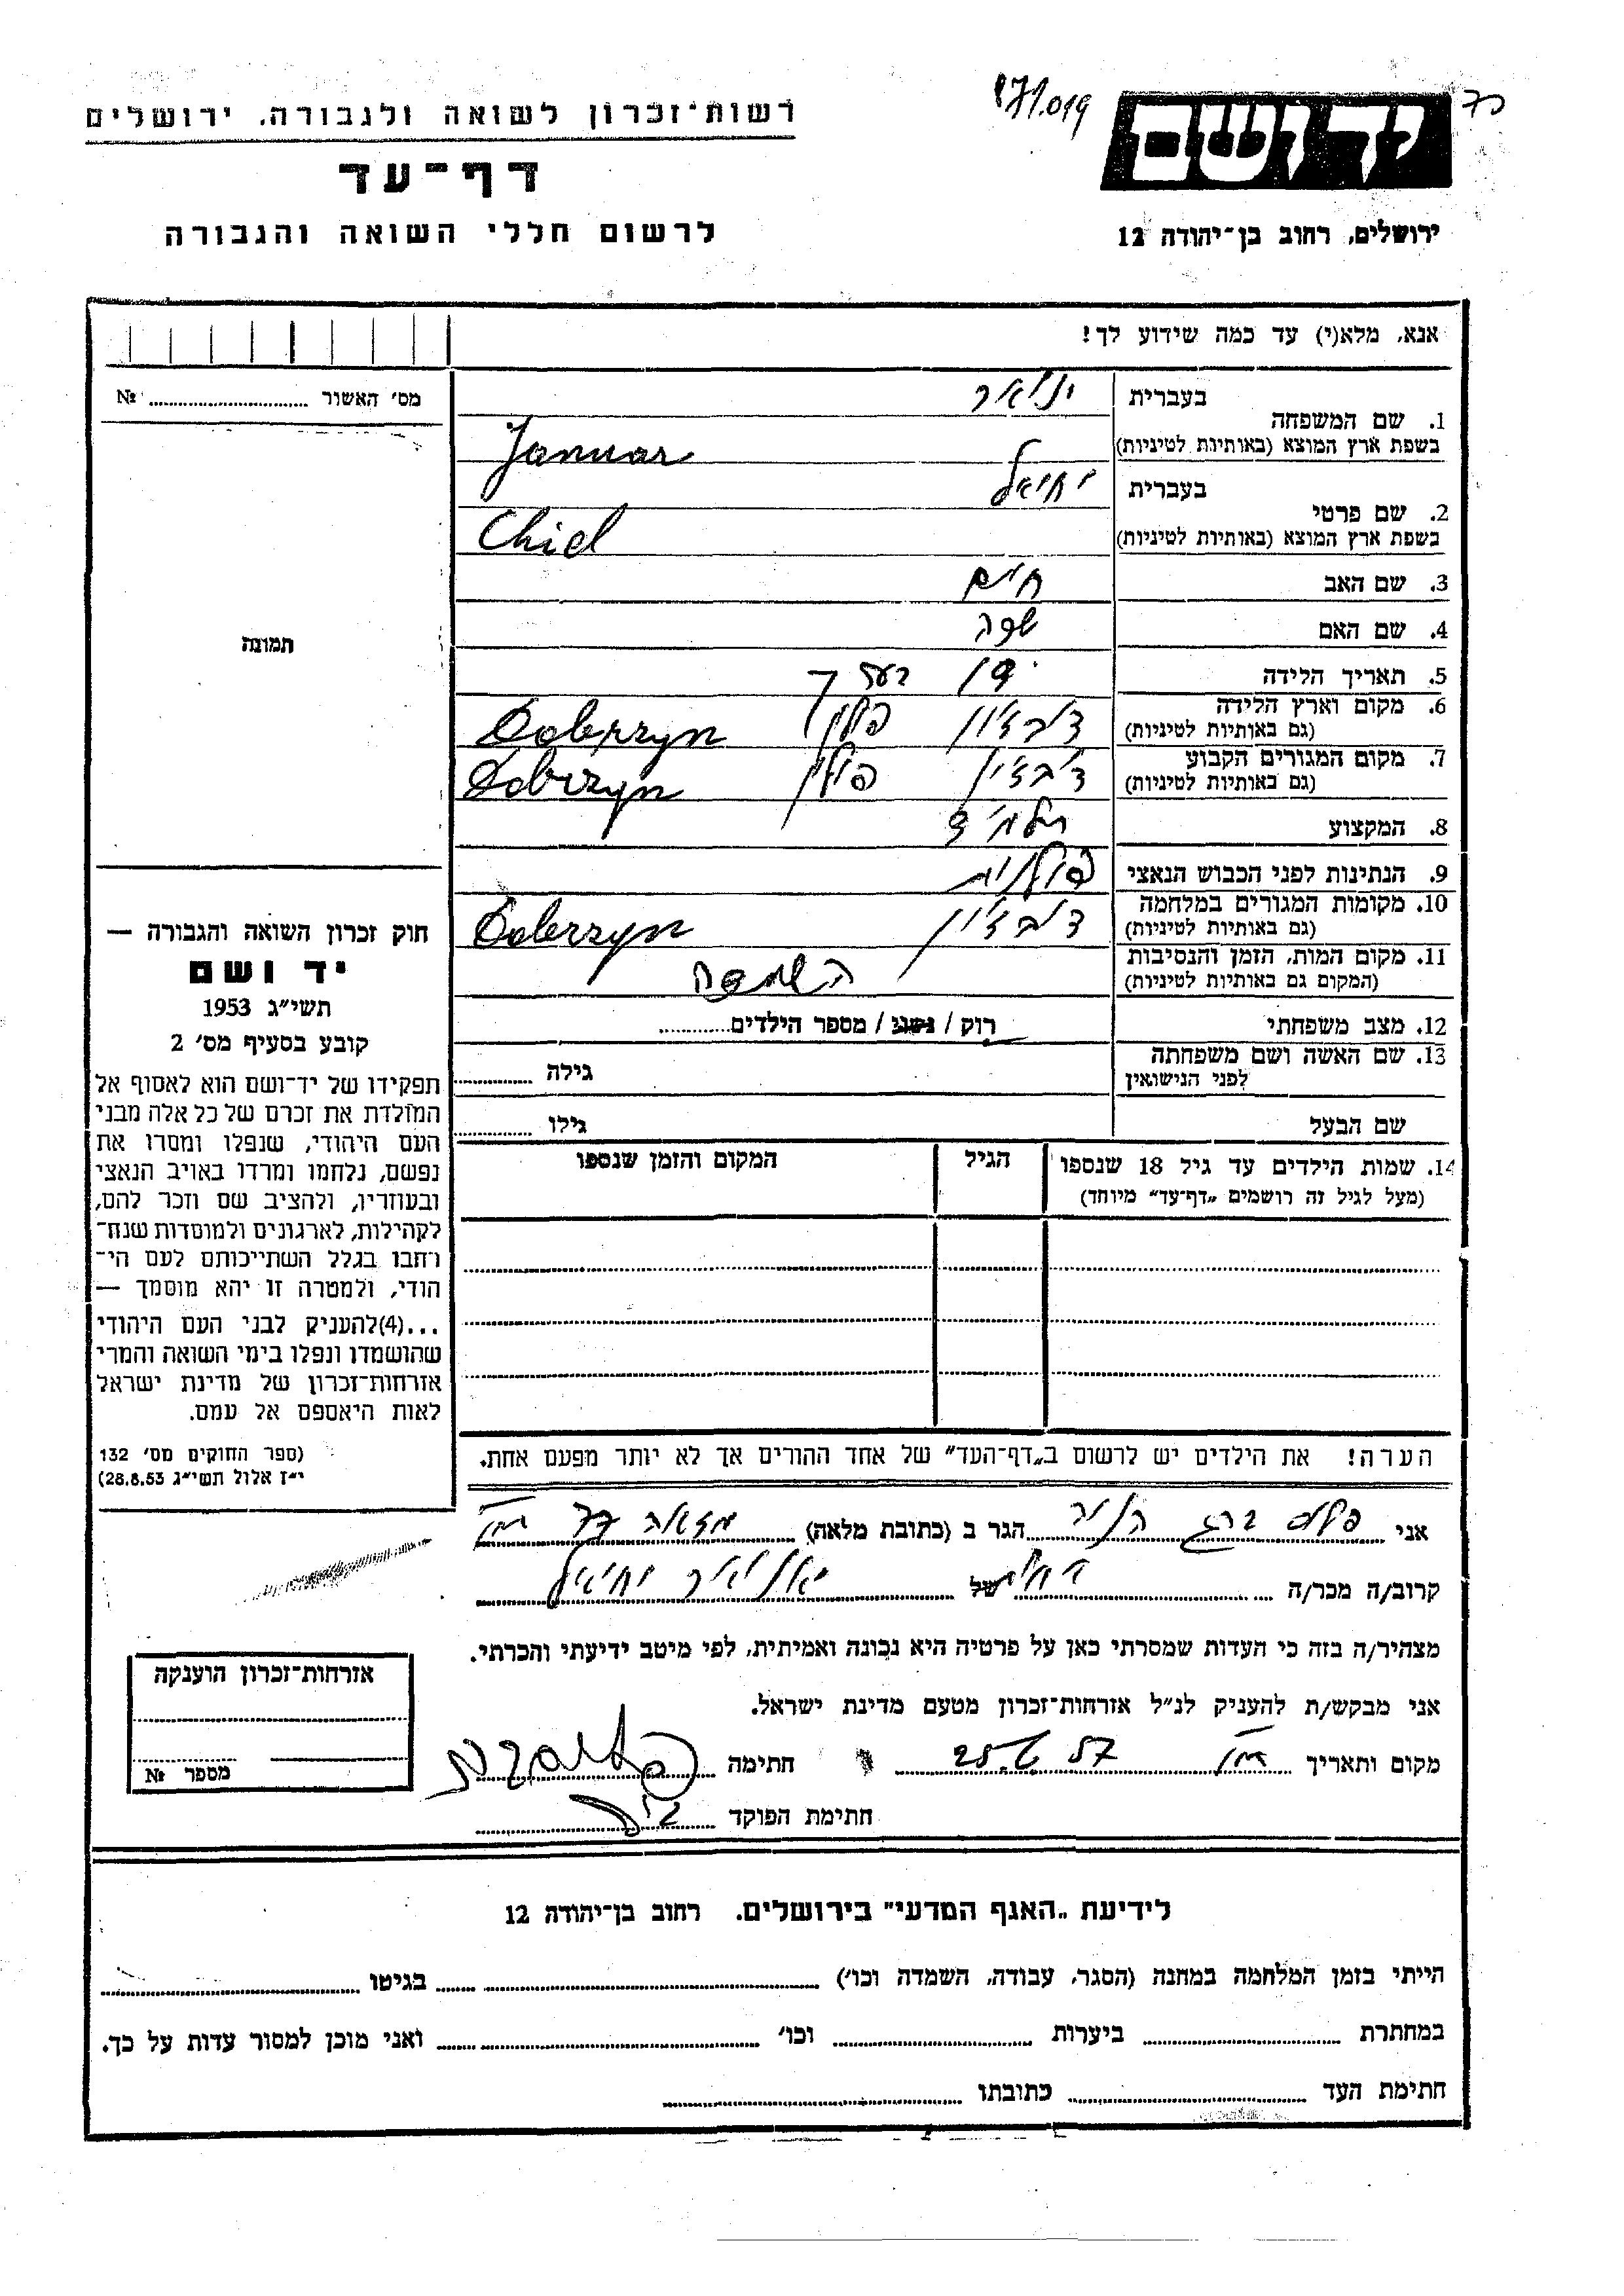 רשות־זכרון לשואה ולגבורה, ירושלים
דף־עד
לרשום חללי השואה והגבורה
יד ושם
ירושלים, רחוב בן־יהודה 12
אנא, מלא(י) עד כמה שידוע לך!
מס׳ האשור № 
1. שם המשפחה
בעברית ינואר
בשפת ארץ המוצא (באותיות לטיניות) Januar
2. שם פרטי
בעברית יחיאל
בשפת ארץ המוצא (באותיות לטיניות) Chiel
3. שם האב חיים
4. שם האם
5. תאריך הלידה בערך
6. מקום וארץ הלידה
(גם באותיות לטיניות) דוברזין פולין Dobrzyn
7. מקום המגורים הקבוע
(גם באותיות לטיניות) דוברזין פולין Dobrzyn
8. המקצוע תלמיד
9. הנתינות לפני הכבוש הנאצי פולנית
10. מקומות המגורים במלחמה
(גם באותיות לטיניות) דוברזין Dobrzyn
11. מקום המות, הזמן והנסיבות
(המקום גם באותיות לטיניות)
12. מצב משפחתי רוק / נשוי / מספר הילדים
13. שם האשה ושם משפחתה
לפני הנישואין גילה
שם הבעל גילו
14. שמות הילדים עד גיל 18 שנספו
(מעל לגיל זה רושמים „דף־עד" מיוחד)
הגיל
המקום והזמן שנספו
הערה! את הילדים יש לרשום ב„דף־העד" של אחד ההורים אך לא יותר מפעם אחת.
תמונה
חוק זכרון השואה והגבורה —
יד ושם
תשי״ג 1953
קובע בסעיף מס׳ 2
תפקידו של יד־ושם הוא לאסוף אל
המולדת את זכרם של כל אלה מבני
העם היהודי, שנפלו ומסרו את
נפשם, נלחמו ומרדו באויב הנאצי
ובעוזריו, ולהציב שם וזכר להם,
לקהילות, לארגונים ולמוסדות שנח־
רחבו בגלל השתייכותם לעם הי־
הודי, ולמטרה זו יהא מוסמך —
...(4)להעניק לבני העם היהודי
שהושמדו ונפלו בימי השואה והמרי
אזרחות־זכרון של מדינת ישראל
לאות היאספם אל עמם.
(ספר החוקים מס׳ 132
י״ז אלול תשי״ג 28.8.53)
אני הגר ב (כתובת מלאה)
קרוב/ה מכר/ה של ינואר יחיאל
מצהיר/ה בזה כי העדות שמסרתי כאן על פרטיה היא נכונה ואמיתית, לפי מיטב ידיעתי והכרתי.
אני מבקש/ת להעניק לנ״ל אזרחות־זכרון מטעם מדינת ישראל.
מקום ותאריך חתימה
חתימת הפוקד
אזרחות־זכרון הוענקה
מספר №
לידיעת „האגף המדעי" בירושלים. רחוב בן־יהודה 12
הייתי בזמן המלחמה במחנה (הסגר, עבודה, השמדה וכו׳) בגיטו
במחתרת ביערות וכו׳ ואני מוכן למסור עדות על כך.
חתימת העד כתובתו